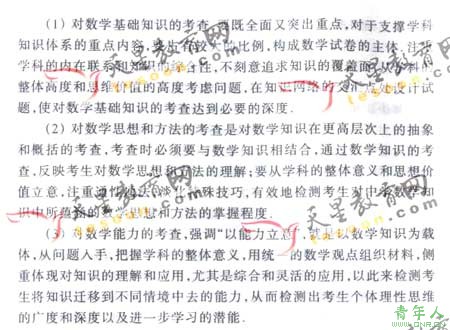 (1) 对数学基础知识的考查,既全面又突出重点,对于支撑学科
知识体系的重点内容,要占有较大的比例,构成数学试卷的主体,注重
学科的内在联系和知识的综合性,不刻意追求知识的覆盖面,从学科的
整体高度和思维价值的高度考虑问题,在知识网络的交汇点设计试
题,使对数学基础知识的考查达到必要的深度.
(2) 对数学思想和方法的考查是对数学知识在更高层次上的抽象
和概括的考查,考查时必须要与数学知识相结合,通过数学知识的考
查,反映考生对数学思想和方法的理解;要从学科的整体意义和思想价
值立意,注重通性通法,淡化特殊技巧,有效地检测考生对中学数学知
识中所蕴涵的数学思想和方法的掌握程度.
(3) 对数学能力的考查,强调“以能力立意”,就是以数学知识为载
体,从问题入手,把握学科的整体意义,用统一的数学观点组织材料,侧
重体现对知识的理解和应用,尤其是综合和灵活的应用,以此来检测考
生将知识迁移到不同情境中去的能力,从而检测出考生个体理性思维
的广度和深度以及进一步学习的潜能.
天星教育网
天星教育网
天星教育网
天星教育网
青年人